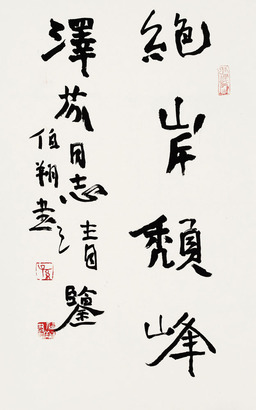 絶岸頽峰
澤同志青鑒
伯翔書之